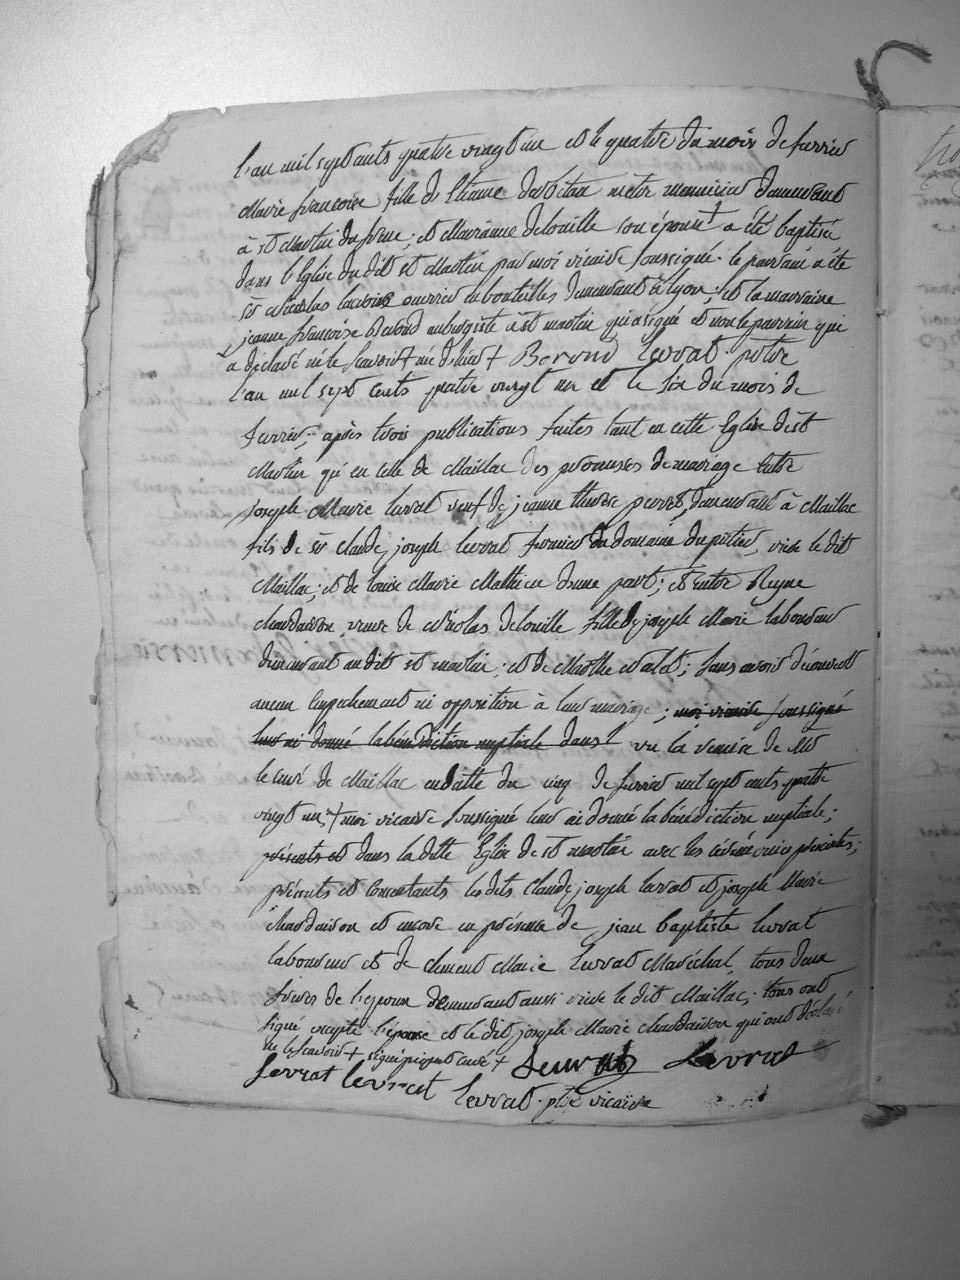 l'an mil sept cents quatre vingt un et le quatre du mois de fevrier
Marie francoise fille d'Etienne maitre menuisier demeurant
à st Martin du frene; et Marianne delouille son épouse + a été baptisée
dans l'Eglise du dit st Martin par moi vicaire soussigné. le parrain a été
sr nicolas ouvrier en bouteilles demeurant à lyon; et la marraine
jeanne francoise Berond aubergiste à st martin qui a signé et non le parrain qui
a déclaré ne le scavoir + née d'hier + Berond levrat. prtre
l'an mil sept cents quatre vingt un et le six du mois de
fevrier, après trois publications faites tant en cette Eglise de st
Martin qu'en celle de Maillac des promesses de mariage entre
joseph Marie levrat veuf de jeanne therese perret, demeurant à Maillac
fils de sr claude joseph levrat fermier du domaine du, rière le dit
Maillac; et de louise Marie Mathieu d'une part; et entre Reyne
chardaison veuve de nicolas delouille fille de joseph Marie laboureur
demeurant au dit st martin; et de Marthe; sans avoir découvert
aucun empechement ni opposition à leur mariage; moi vicaire soussigné
leur ai donné la bénédiction nuptiale dans l vu la remise de Mr
le curé de Maillac en datte du cinq de fevrier mil sept cents quatre
vingt un; + moi vicaire soussigné leur ai donné la bénédiction nuptiale;
présents et dans la ditte Eglise de st martin avec les cérémonies prescrites;
présents et consentants les dits Claude joseph levrat et joseph Marie
chardaison et encore en présence de jean baptiste levrat
laboureur et de clement Marie levrat Maréchal, tous deux
freres de l'epoux demeurant aussi rière le dit Maillac; tous ont
signé excepté l'épouse et le dit joseph Marie chardaison qui ont déclaré
ne le scavoir + signé curé + Levrat Levrat
Levrat levrat levrat. ptre vicaire